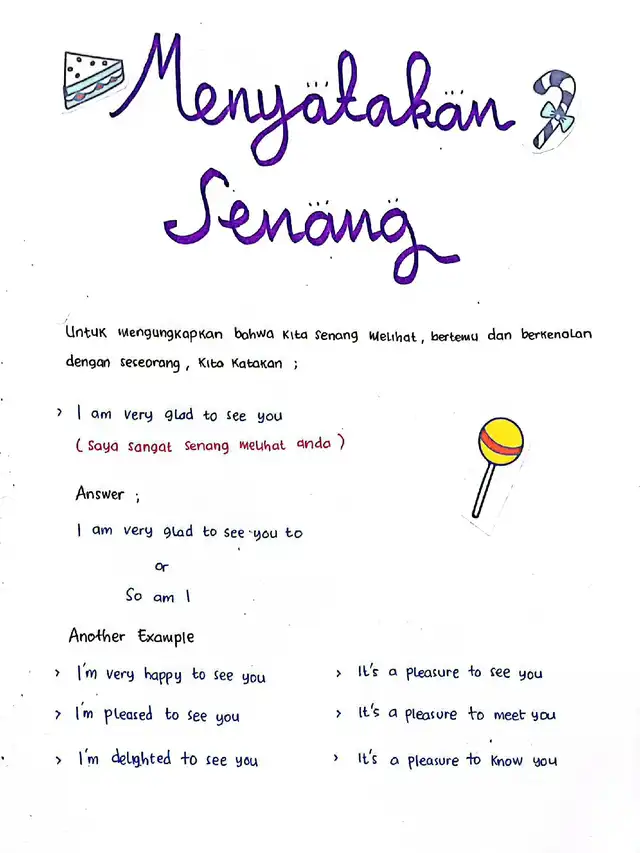 Menyatakan
Senang
Untuk mengungkapkan bahwa kita senang melihat, bertemu dan berkenalan
dengan seseorang, kita katakan ;
> I am very glad to see you
( Saya sangat senang melihat anda )
Answer ;
I am very glad to see you to
or
So am I
Another Example
> I'm very happy to see you
> I'm pleased to see you
> I'm delighted to see you
> It's a pleasure to see you
> It's a pleasure to meet you
> It's a pleasure to know you